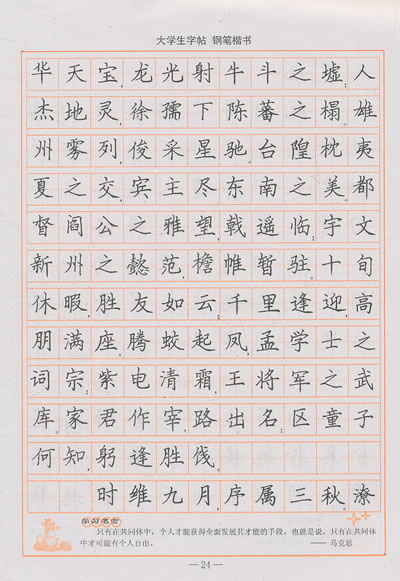 大学生字帖 钢笔楷书
华天宝，龙光射牛斗之墟；人
杰地灵，徐孺下陈蕃之榻。雄
州雾列，俊采星驰。台隍枕夷
夏之交，宾主尽东南之美。都
督阎公之雅望，戟遥临；宇文
新州之懿范，襜帷暂驻。十旬
休暇，胜友如云；千里逢迎，高
朋满座。腾蛟起凤，孟学士之
词宗；紫电清霜，王将军之武
库。家君作宰，路出名区；童子
何知，躬逢胜饯。
时维九月，序属三秋。潦
学习名言
只有在共同体中，个人才能获得全面发展其才能的手段，也就是说，只有在共同体
中才可能有个人自由。
—— 马克思
—24—